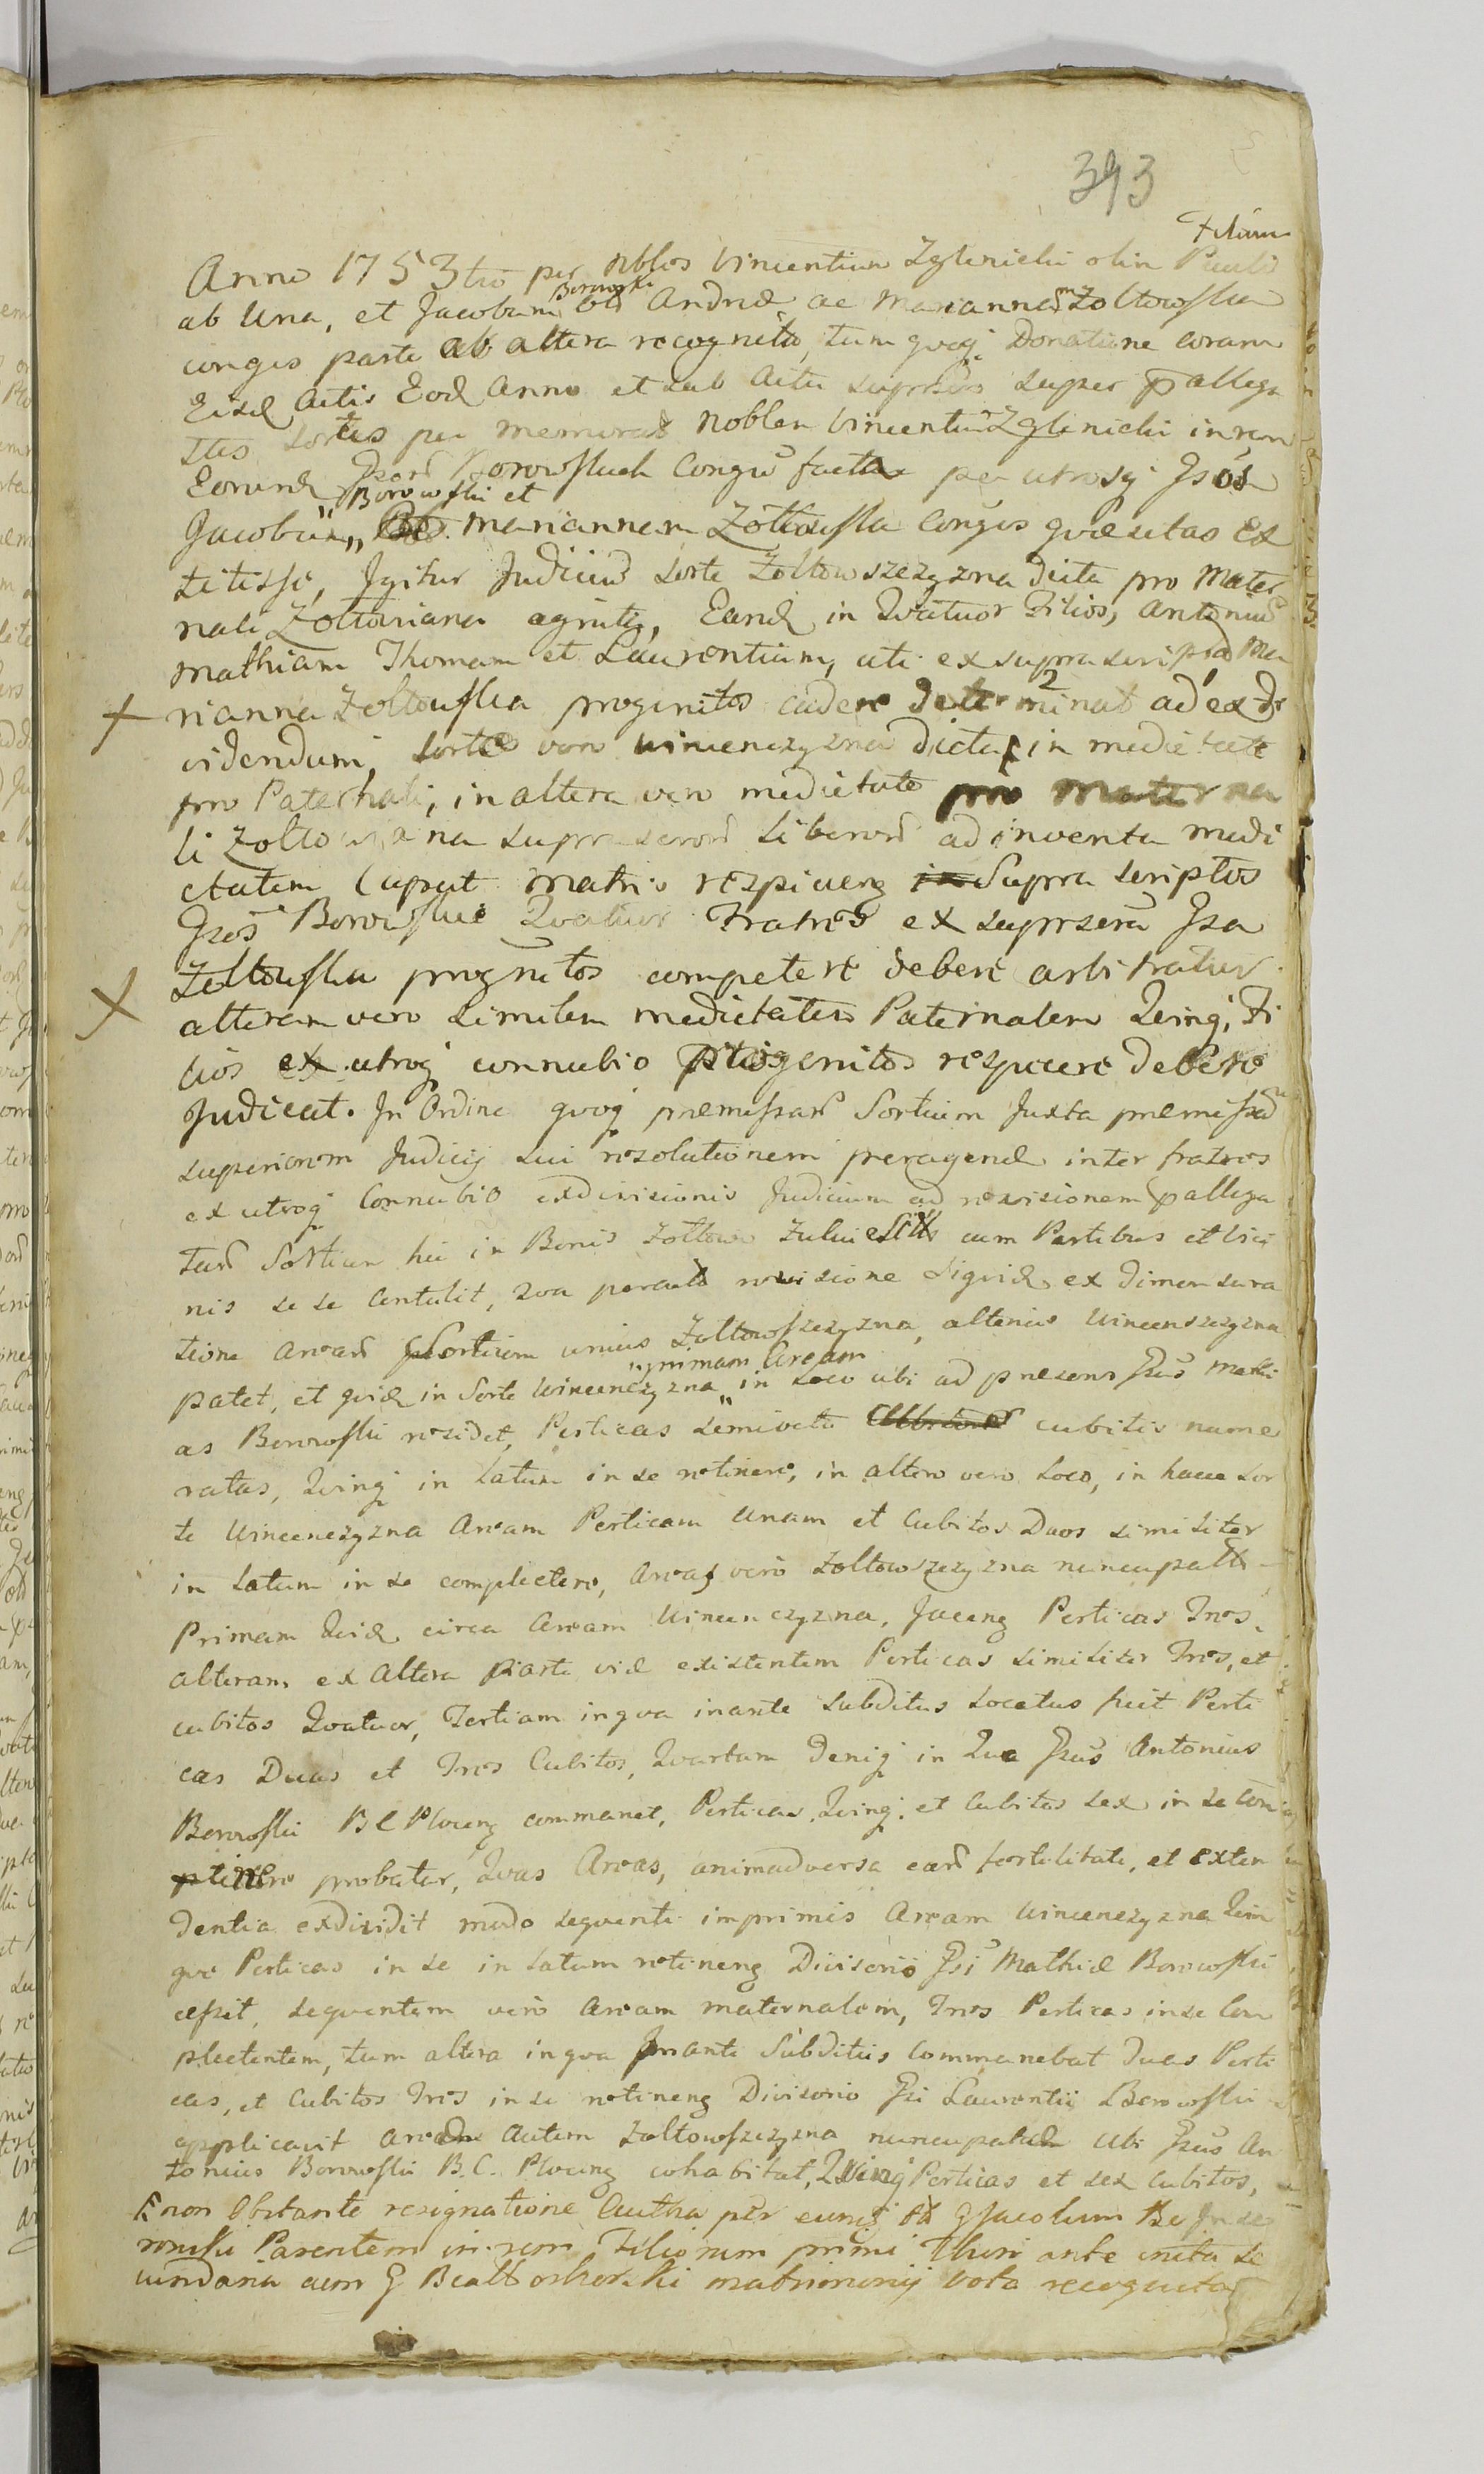 393
Filium
Anno 1753tio per Nbles Vincentium Zglenicki olim Pauli
ab Una, et Jacobum Borowski olim Andreæ ac Mariannam Zołtowska
conges parte ab altera recognita, tum qvoq Donatione coram
Eisd Actis Eod Anno et sub Actu suprascr super pallega
tas sortes per memorat Noblem Vincentium Zglenicki in rem
Eorund Gsorum Borowskich Congum facta per utrosq Gsos
Jacobum „Borowski et Mariannam Zołtowska Conges qvæsitas Ex
titisse, Igitur Judicium sorte Zołtowszczyzna dicta pro Mater
nali Zołtoviana agnita, Eand in Qvatuor Filios, Antonium
Mathiam Thomam et Laurentium, uti ex suprascripta Ma
rianna Zołtowska progenitos cadere determinat ad exdi
videndum, sorte vero Wincenczyzna dicta in medietate
pro Paternali, in altera vero medietate pro materna
li Zołtowiana suprascrorum Liberorum adinventa medi
etatem Caput Matris respicieng Supra scriptos
Gsos Borowskie Qvatuor Fratres ex suprascra Gsa
Zołtowska prognitos competere debere arbitratur.
alteram vero similem medietatem Paternalem Qvinq, Fi
lios ex utroq connubio progenitos respicere debere
Judicat. In Ordine qvoq præmissar Sortium Juxta præmissam
superiorem Judicij sui resolutionem peragend inter fratres
ex utroq Connubio exdivisionis Judicium ad revisionem pallega
tar Sortium hic in Bonis Zołtowo cum Partibus et Vici
nis se se Contulit, qva peracta revisione siqvid ex dimensura
tione Arearum Sortium unius Zołtowszczyzna, alterius Wincenszczyzna
patet, et qvid in Sorte Wincenczyzna „primam Aream in Loco ubi ad præsens Gsus Mathi
as Borowski residet, Perticas cubitis nume
ratas, Qvinq in Latum in se retinere, in altero vero Loco, in hacce sor
te Wincenczyzna Aream Perticam Unam et Cubitos Duos similiter
in Latum in se complectere, Areas vero Zołtowszczyzna nuncupat
Primam Qvid circa Aream Wincenczyzna, Jaceng Perticas Tres,
alteram ex altera Parte viæ existentem Perticas similiter Tres, et
cubitos Qvatuor, Tertiam in qva inante Subditus Locatus fuit Perti
cas Duas et Tres Cubitos, Qvartam Deniq in Qva Gsus Antonius
Borowski B C Płoceng commanet, Perticas Qvinq, et Cubitos sex in se con
tinere probatur, Qvas Areas, animadversa earum fertilitate, et exten
dentia exdividit modo seqventi imprimis Aream Wincenczyzna Qvin
qve Perticas in se in Latum retineng Divisorio Gsi Mathiæ Borowski
cessit, seqventem vero Aream maternalem, Tres Perticas in se Com
plectentem, tum altera in qva Inante Subditus Commanebat Duas Perti
cas, et Cubitos Tres in se retineng Divisorio Gsi Laurentii Borowski
applicavit Aream Autem Zołtowszczyzna nuncupatam Ubi Gsus An
tonius Borowski B.C. Płoceng cohabitat, Qvinq Perticas et sex Cubitos,
non Obstante resignatione per eund Jacobum Bo
rowski Parentem in rem Filiorum primi Thori ante inita se
cundaria cum G matrimonij vota recognita